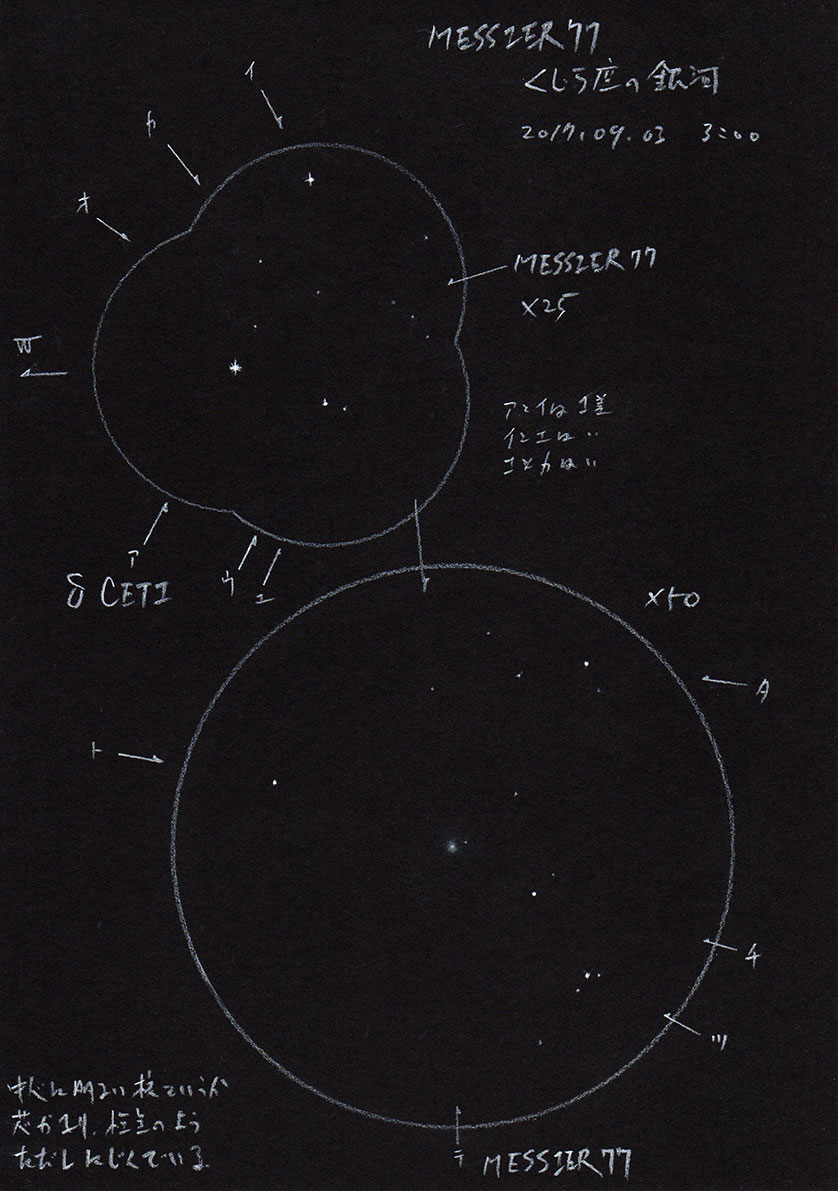 MESSIER 77
くじら座の銀河
2017.09.03 3:00
イ
カ
オ
MESSIER 77
×25
W
アとイは1等
イとエは〃
エとカは〃
ア
δ CETI
ウ
エ
×50
タ
ト
チ
ツ
中心に明るい核というか
芯があり、恒星のよう
ただしにじんでいる
テ MESSIER 77